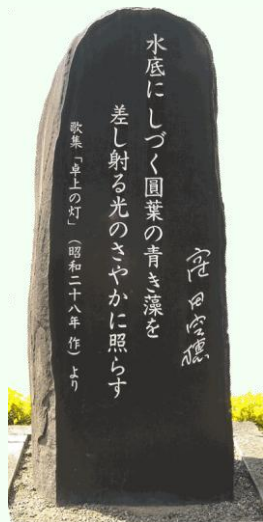 水底に しづく圓葉の青き藻を
差し射る光のさやかに照らす
歌集「卓上の灯」（昭和二十八年 作）より
窪田空穂